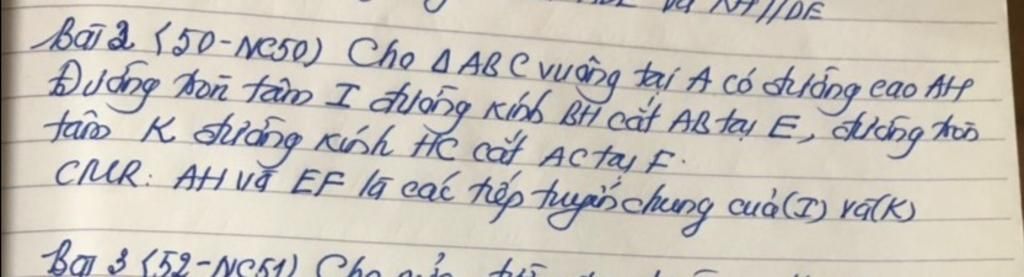 và KH//DE
Bài 2 (50-NC50) Cho ΔABC vuông tại A có đường cao AH
Đường tròn tâm I đường kính BH cắt AB tại E, đường tròn
tâm K đường kính HC cắt AC tại F.
CMR: AH và EF là các tiếp tuyến chung của (I) và (K)
Bài 3 (52-NC51) Cho